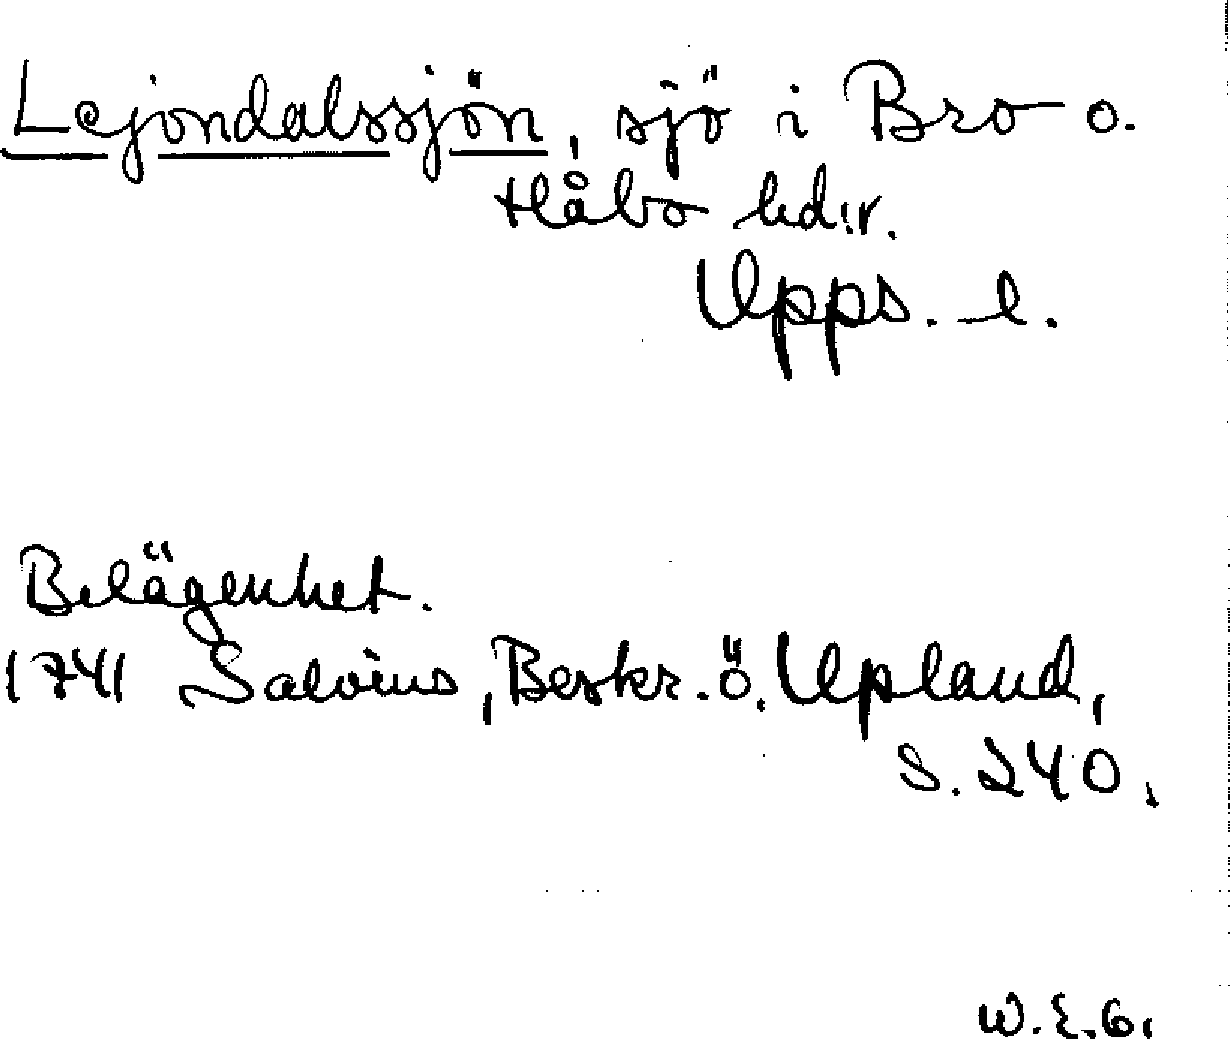 Lejondalssjön, sjö i Bro o.
Håbo hd:r.
Upps. l.
Belägenhet.
1741 Salvius, Beskr. ö. Upland,
s. 240.
W.E.G.